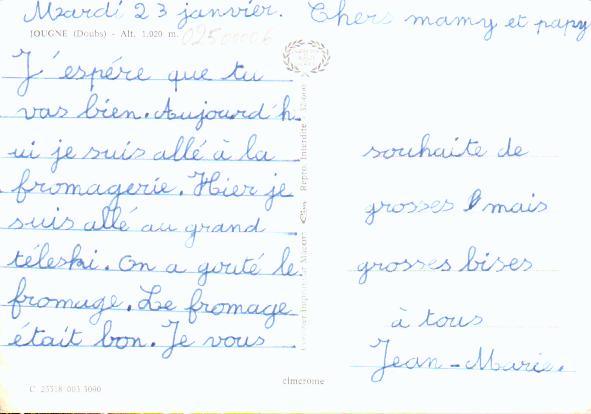 Mardi 23 janvier. Chers mamy et papy
JOUGNE (Doubs) - Alt. 1.020 m.
J'espére que tu
vas bien. Aujourd'h
ui je suis allé à la
fromagerie. Hier je
suis allé au grand
téleski. On a gouté le
fromage. Le fromage
était bon. Je vous
C 25318 003 3090
souhaite de
grosses mais
grosses bises
à tous
Jean-Marie.
cimcrome
Repro. Interdite